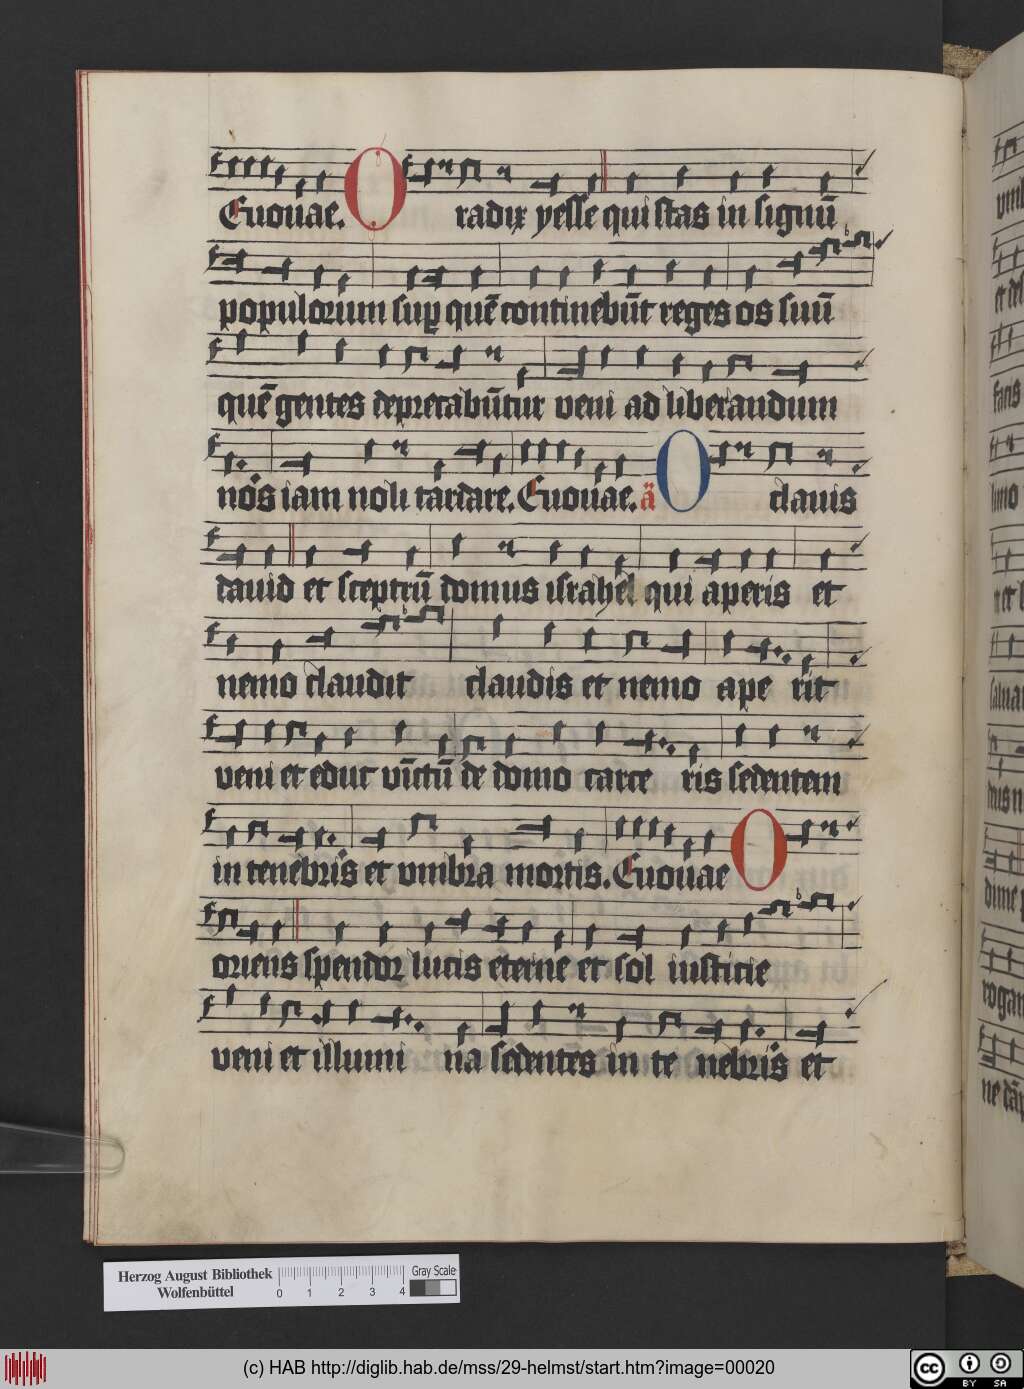 Euouae. O radix yesse qui stas in signū
populorum sup quē continebūt reges os suū
quē gentes deprecabūtur veni ad liberandum
nos iam noli tardare. Euouae. a O clauis
dauid et sceptrū domus israhel qui aperis et
nemo claudit claudis et nemo ape rit
veni et educ vīctū de domo carce ris sedentem
in tenebris et vmbra mortis. Euouae O
oriens spendor lucis eterne et sol iusticie
veni et illumi na sedentes in te nebris et
Herzog August Bibliothek
Wolfenbüttel
0 1 2 3 4
Gray Scale
(c) HAB http://diglib.hab.de/mss/29-helmst/start.htm?image=00020
cc BY SA